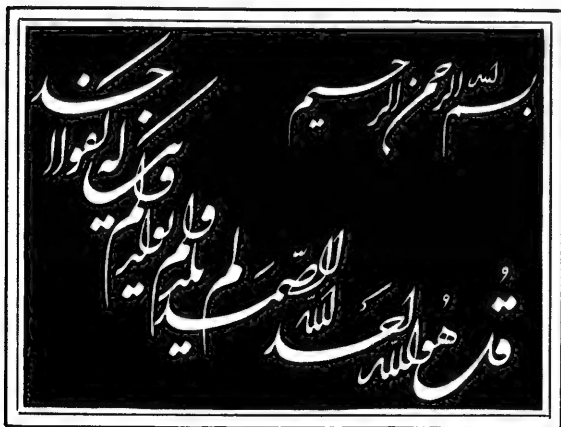 بسم الله الرحمن الرحيم
قُل هُوالله احد الله الصّمد لم يلد ولم يولد ولم يكن له كفوا احد